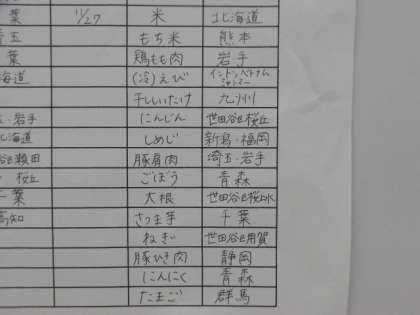 葉 11/27 米 北海道
埼玉 もち米 熊本
葉 鶏もも肉 岩手
海道 (冷)えび インド・ベトナム
ミャンマー
干ししいたけ 九州
・岩手 にんじん 世田谷区桜丘
北海道 しめじ 新潟・福岡
谷区瀬田 豚肩肉 埼玉・岩手
桜丘 ごぼう 青森
千葉 大根 世田谷区
高知 さつま芋 千葉
ねぎ 世田谷区用賀
豚ひき肉 静岡
にんにく 青森
たまご 群馬